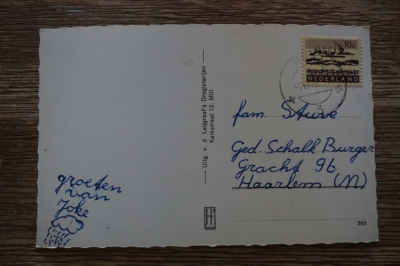 10c
NEDERLAND
fam. Sture
Ged. Schalk Burger
Gracht 96
Haarlem (N)
Uitg. v. d. Leijgraaf's Drogisterijen
Kerkstraat 12, Mill
groeten
van
Joke
365